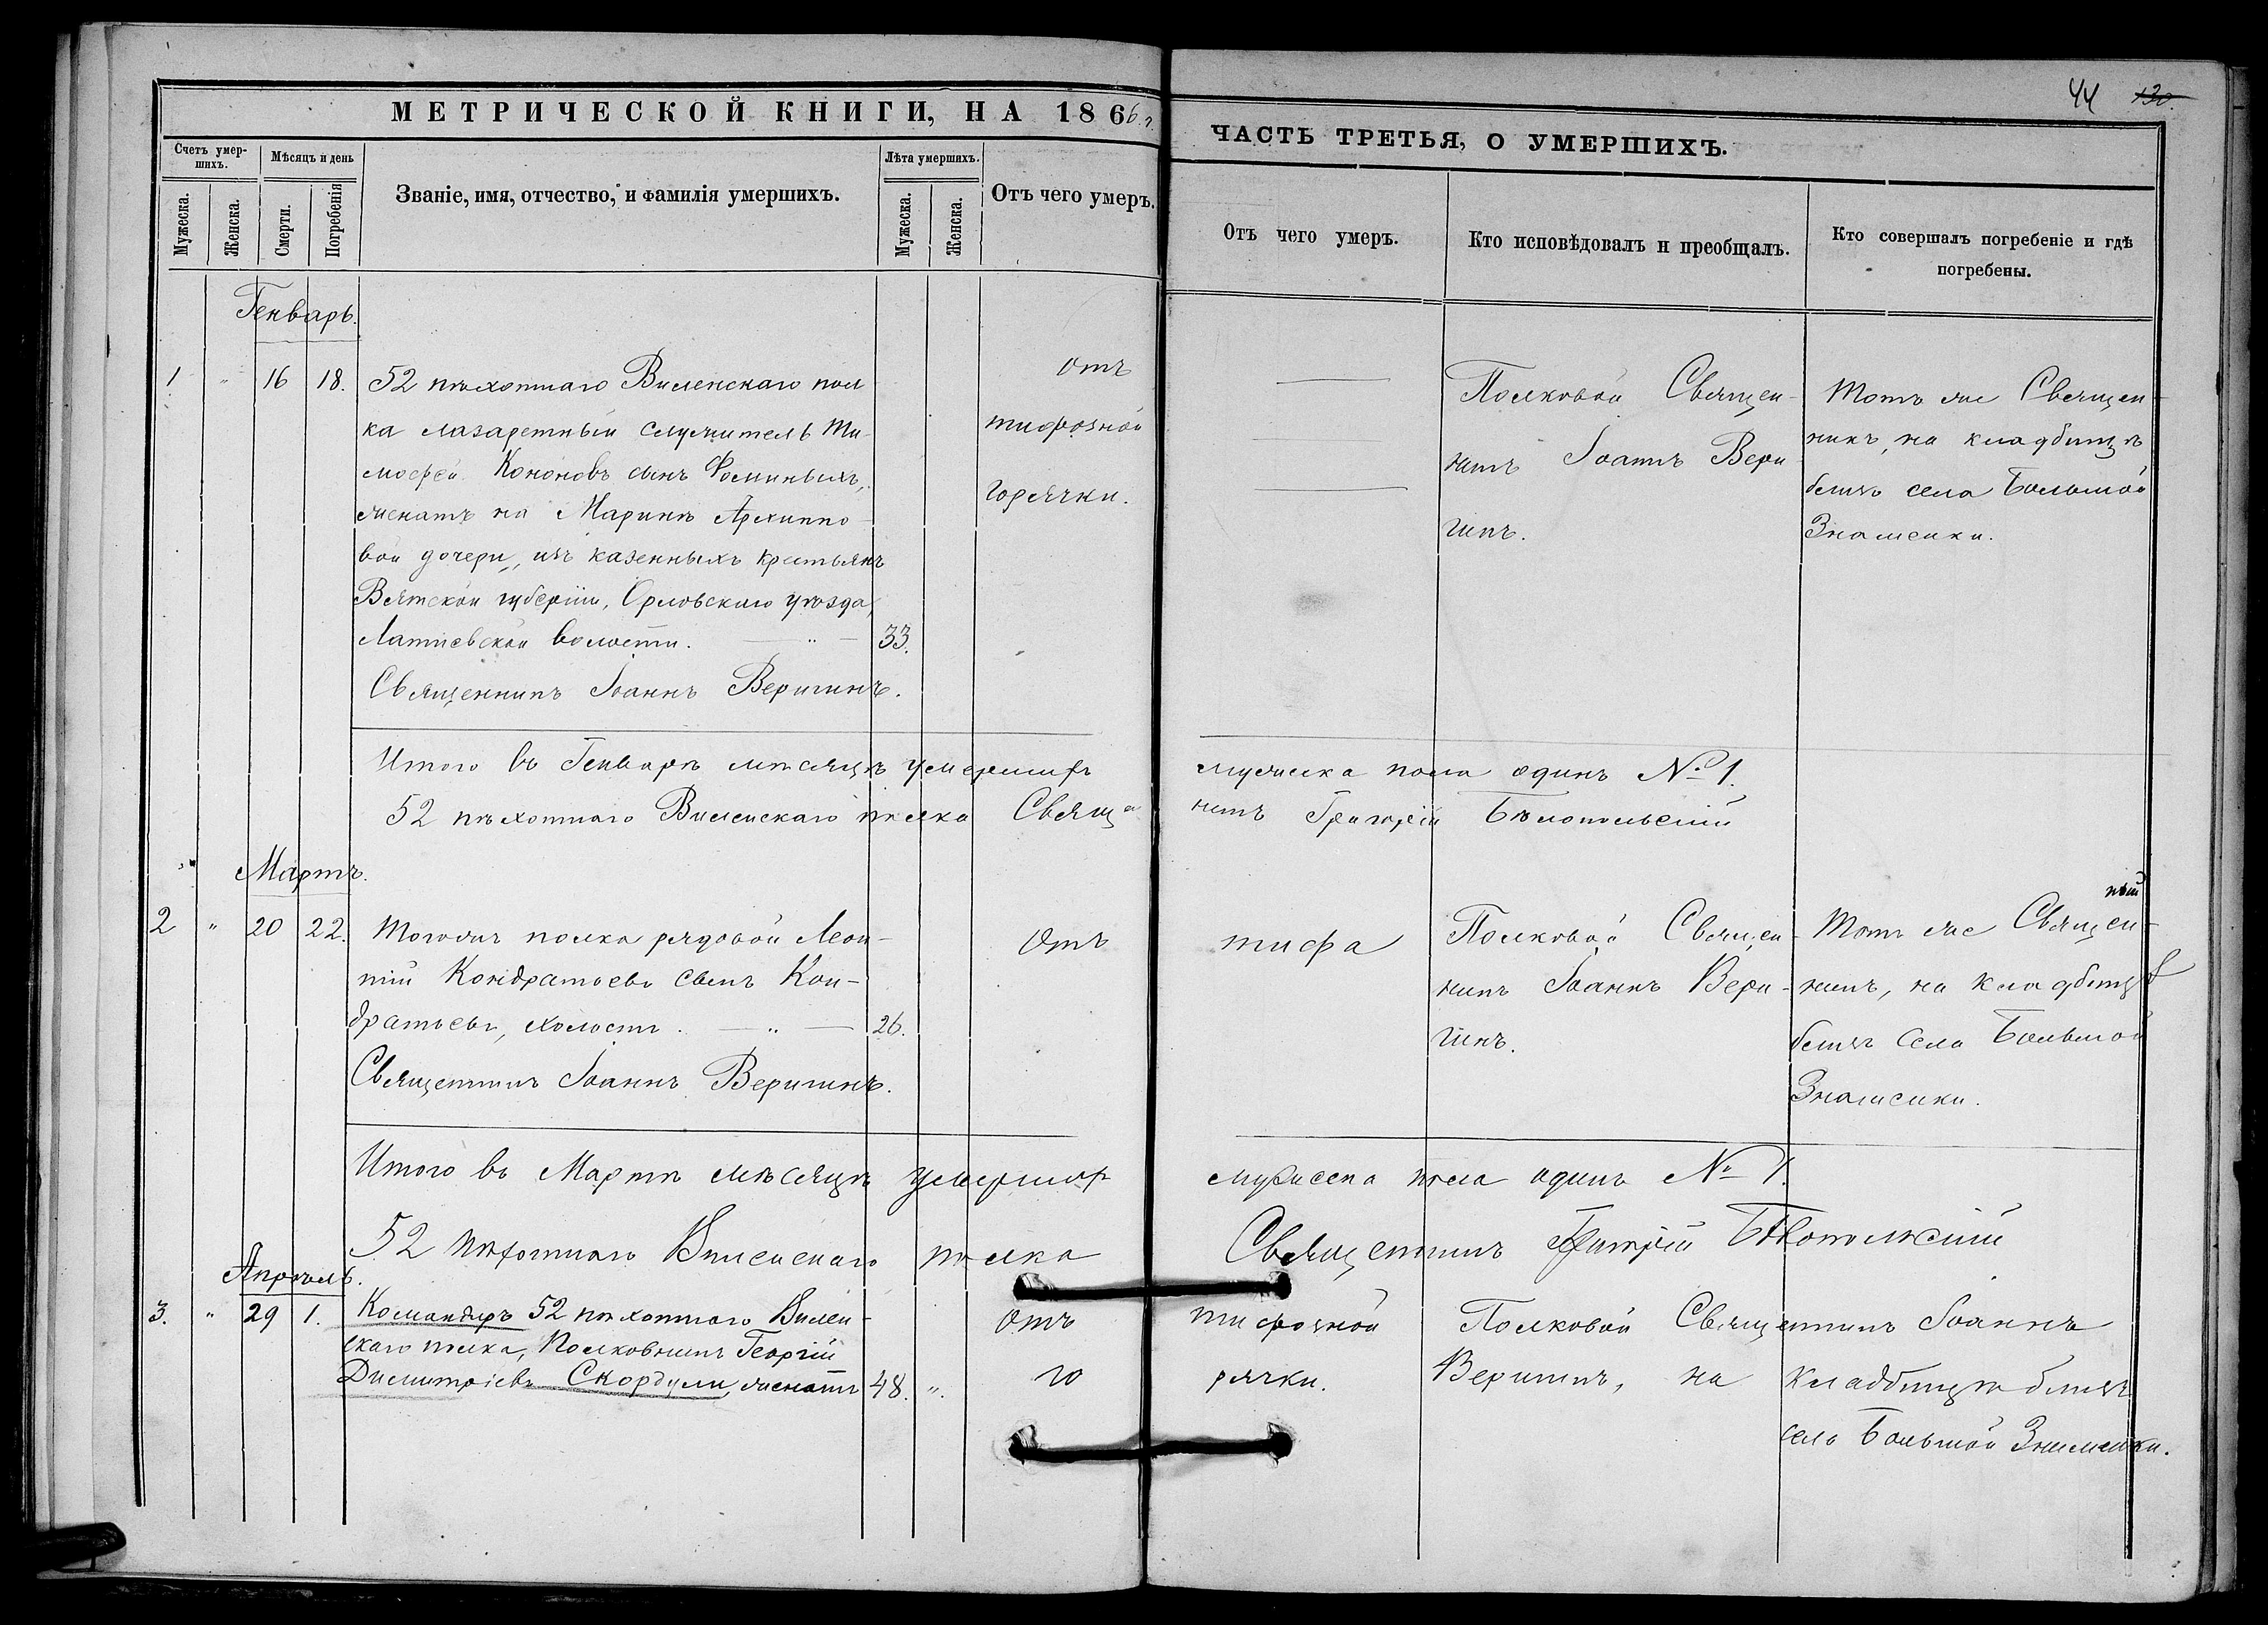 44 130.
МЕТРИЧЕСКОЙ КНИГИ, НА 1866 г.
ЧАСТЬ ТРЕТЬЯ, О УМЕРШИХЪ.
Счетъ умер-
шихъ.
Мѣсяцъ и день
Званіе, имя, отчество, и фамилія умершихъ.
Лѣта умершихъ.
Отъ чего умеръ.
Мужеска.
Женска.
Смерти.
Погребенія
Мужеска.
Женска.
Отъ чего умеръ.
Кто исповѣдовалъ и пріобщалъ.
Кто совершалъ погребеніе и гдѣ
погребены.
Генварь.
1 " 16 18.
52 пѣхотнаго Виленскаго пол
ка лазаретный служитель Ти-
мофей Кононовъ сынъ Фоминыхъ,
женатъ на Маринѣ Архиппо-
вой дочери, изъ казенныхъ крестьянъ
Вятской губерніи, Орловскаго уѣзда,
волости. — " — 33.
Священникъ Іоаннъ Веригинъ.
отъ
тифозной
горячки.
Полковой Священ-
никъ Іоаннъ Вери
гинъ.
Тотъ же Священ-
никъ, на кладбищѣ
близъ села Большой
Знаменки.
Итого въ Генварѣ мѣсяцѣ умершихъ мужеска пола одинъ № 1.
52 пѣхотнаго Виленскаго полка Священникъ Григорій Бѣлопольскій
Мартъ.
2 " 20 22.
Тогожъ полка рядовой Леон-
тій Кондратьевъ сынъ Кон-
дратьевъ, холостъ. — " — 26.
Священникъ Іоаннъ Веригинъ.
Отъ тифа
Полковой Священ-
никъ Іоаннъ Вери-
гинъ.
Тотъ же Священ-
никъ, на кладбищѣ
близъ села Большой
Знаменки.
Итого въ Мартѣ мѣсяцѣ умершихъ мужеска пола одинъ № 1.
52 пѣхотнаго Виленскаго полка Священникъ Григорій Бѣлопольскій
Апрѣль.
3. " 29 1.
Командиръ 52 пѣхотнаго Вилен-
скаго полка, Полковникъ Георгій
Димитріевъ Скордули, женатъ 48. ".
отъ тифозной
горячки.
Полковой Священникъ Іоаннъ
Веригинъ, на кладбищѣ близъ
села Большой Знаменки.